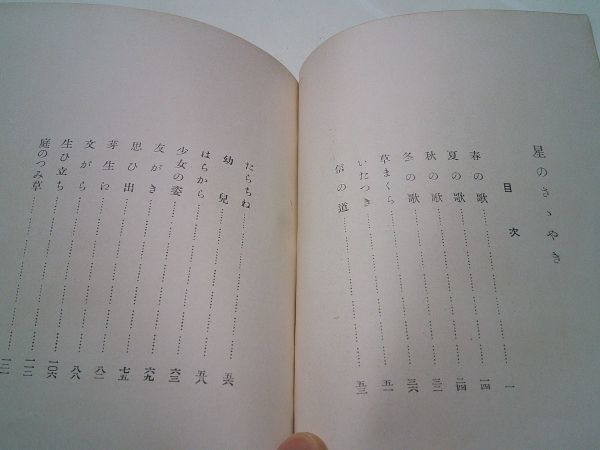 星のさゝやき
目次
春の歌……………一
夏の歌……………一四
秋の歌……………二四
冬の歌……………三二
草まくら……………三六
いたつき……………五一
信の道……………五三
たらちね……………五六
幼兒……………五八
はらから……………六三
少女の姿……………六九
友がき……………七五
思ひ出……………八二
芽生に……………八八
文がら……………一〇六
生ひ立ち……………一一二
庭のつみ草……………一二一